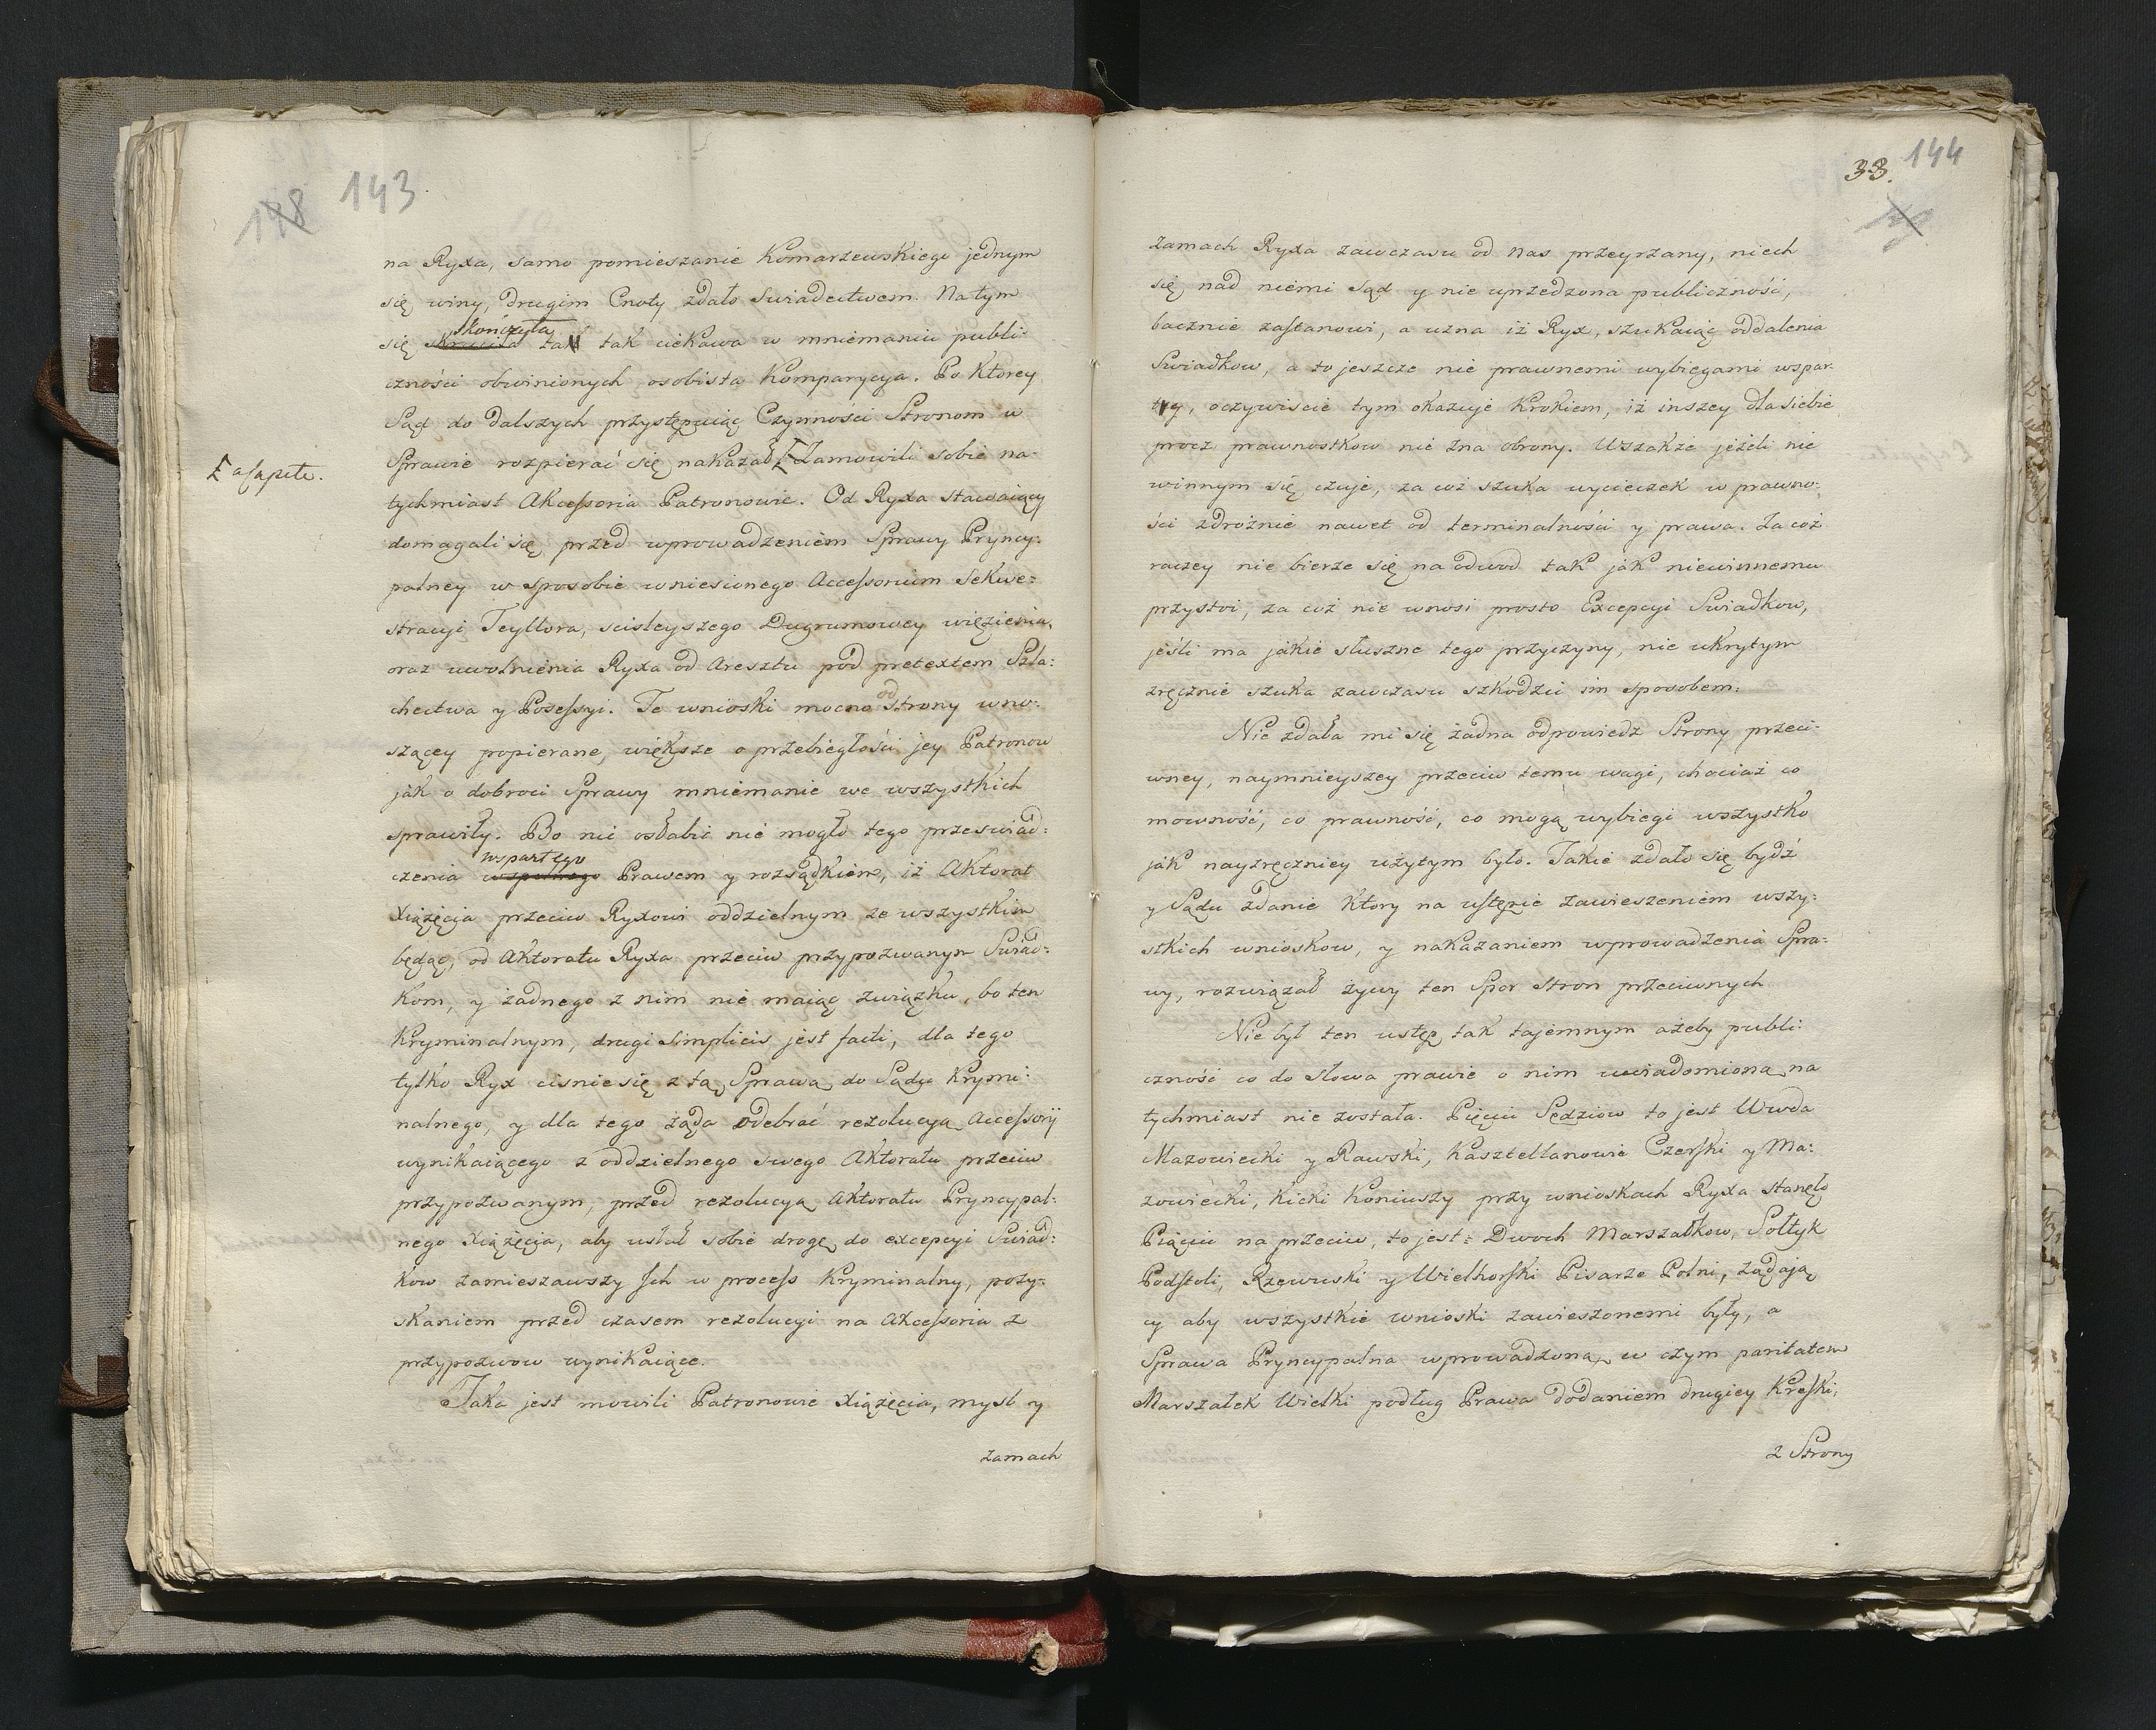 148 143
na Ryxa, samo pomieszanie Komarzewskiego jednym
się winy, drugim Cnoty zdało Swiadectwem. Na tym
skończyła
się skruciła ta tak ciekawa w mniemaniu publi:
czności obwinionych osobista Komparycya. Po Ktorey
Sąd do dalszych przystępuiąc Czynności Stronom w
Sprawie rozpierać się nakazał [Zamowili sobie na:
[a capite.
tychmiast Akcessoria Patronowie. Od Ryxa stawaiący
domagali się przed wprowadzeniem Sprawy Pryncy:
palney w sposobie wniesionego Accessorium Sekwe:
stracyi Teyllora, scisleyszego Dugrumowey więzienia,
oraz uwolnienia Ryxa od Aresztu pod pretextem Szla:
od
chectwa y Possessyi. Te wnioski mocno strony wno:
szącey popierane, większe o przebiegłości jey Patronow
jak o dobroci Sprawy mniemanie we wszystkich
sprawiły. Bo nic osłabić nie mogło tego przeswiad:
wspartego
czenia wspolnego Prawem y rozsądkiem, iż Aktorat
Xiążęcia przeciw Ryxowi oddzielnym ze wszystkim
będąc, od Aktoratu Ryxa przeciw przypozwanym Swiad:
kom, y żadnego z nim nie maiąc związku, bo ten
Kryminalnym, drugi Simplicis jest facti, dla tego
tylko Ryx cisnie się z tą Sprawą do Sądu Krymi:
nalnego, y dla tego żąda odebrać rezolucyą Accessorij
wynikaiącego z oddzielnego swego Aktoratu przeciw
przypozwanym, przed rezolucyą Aktoratu Pryncypal:
nego Xiążęcia, aby usłał sobie drogę do excepcyi Swiad:
kow zamieszawszy Ich w process Kryminalny, pozy:
skaniem przed czasem rezolucyi na Akcessoria z
przypozwow wynikaiące.
Taka jest mowili Patronowie Xiążęcia, mysl y
zamach
33. 144
zamach Ryxa zawczasu od nas przeyrzany, niech
się nad niemi Sąd y nie uprzedzona publiczność,
bacznie zastanowi, a uzna iż Ryx, szukaiąc oddalenia
Swiadkow, a to jeszcze nie prawnemi wybiegami wspar:
ty, oczywiscie tym okazuje Krokiem, iż inszey dla siebie
procz prawnostkow nie zna obrony. Wszakże jeżeli nie
winnym się czuje, za coż szuka wycieczek w prawno:
ści zdrożnie nawet od terminalności y prawa. Za coż
raczey nie bierze się na odwod tak jak niewinnemu
przystoi, za coż nie wnosi prosto Excepcyi Swiadkow,
jeśli ma jakie słuszne tego przyczyny, nie ukrytym
zręcznie szuka zawczasu szkodzić im sposobem.
Nie zdała mi się żadna odpowiedz Strony przeci:
wney, naymnieyszey przeciw temu wagi, chociaż co
mowność, co prawność, co mogą wybiegi wszystko
jak nayzręczniey użytym było. Takie zdało się bydź
y Sądu zdanie Ktory na ustępie zawieszeniem wszy:
stkich wnioskow, y nakazaniem wprowadzenia Spra:
wy, rozwiązał żywy ten Spor stron przeciwnych
Nie był ten ustęp tak tajemnym ażeby publi:
czność co do słowa prawie o nim uwiadomioną na
tychmiast nie została. Pięciu Sędziow to jest Wwda
Mazowiecki y Rawski, Kasztellanowie Czerski y Ma:
zowiecki, Kicki Koniuszy przy wnioskach Ryxa stanęło
Pięciu na przeciw, to jest: Dwoch Marszałkow, Sołtyk
Podstoli, Rzewuski y Wielhorski Pisarze Polni, żądają
cy aby wszystkie wnioski zawieszonemi były, a
Sprawa Pryncypalna wprowadzoną, w czym paritatem
Marszałek Wielki podług Prawa dodaniem drugiey Kreski,
z Strony